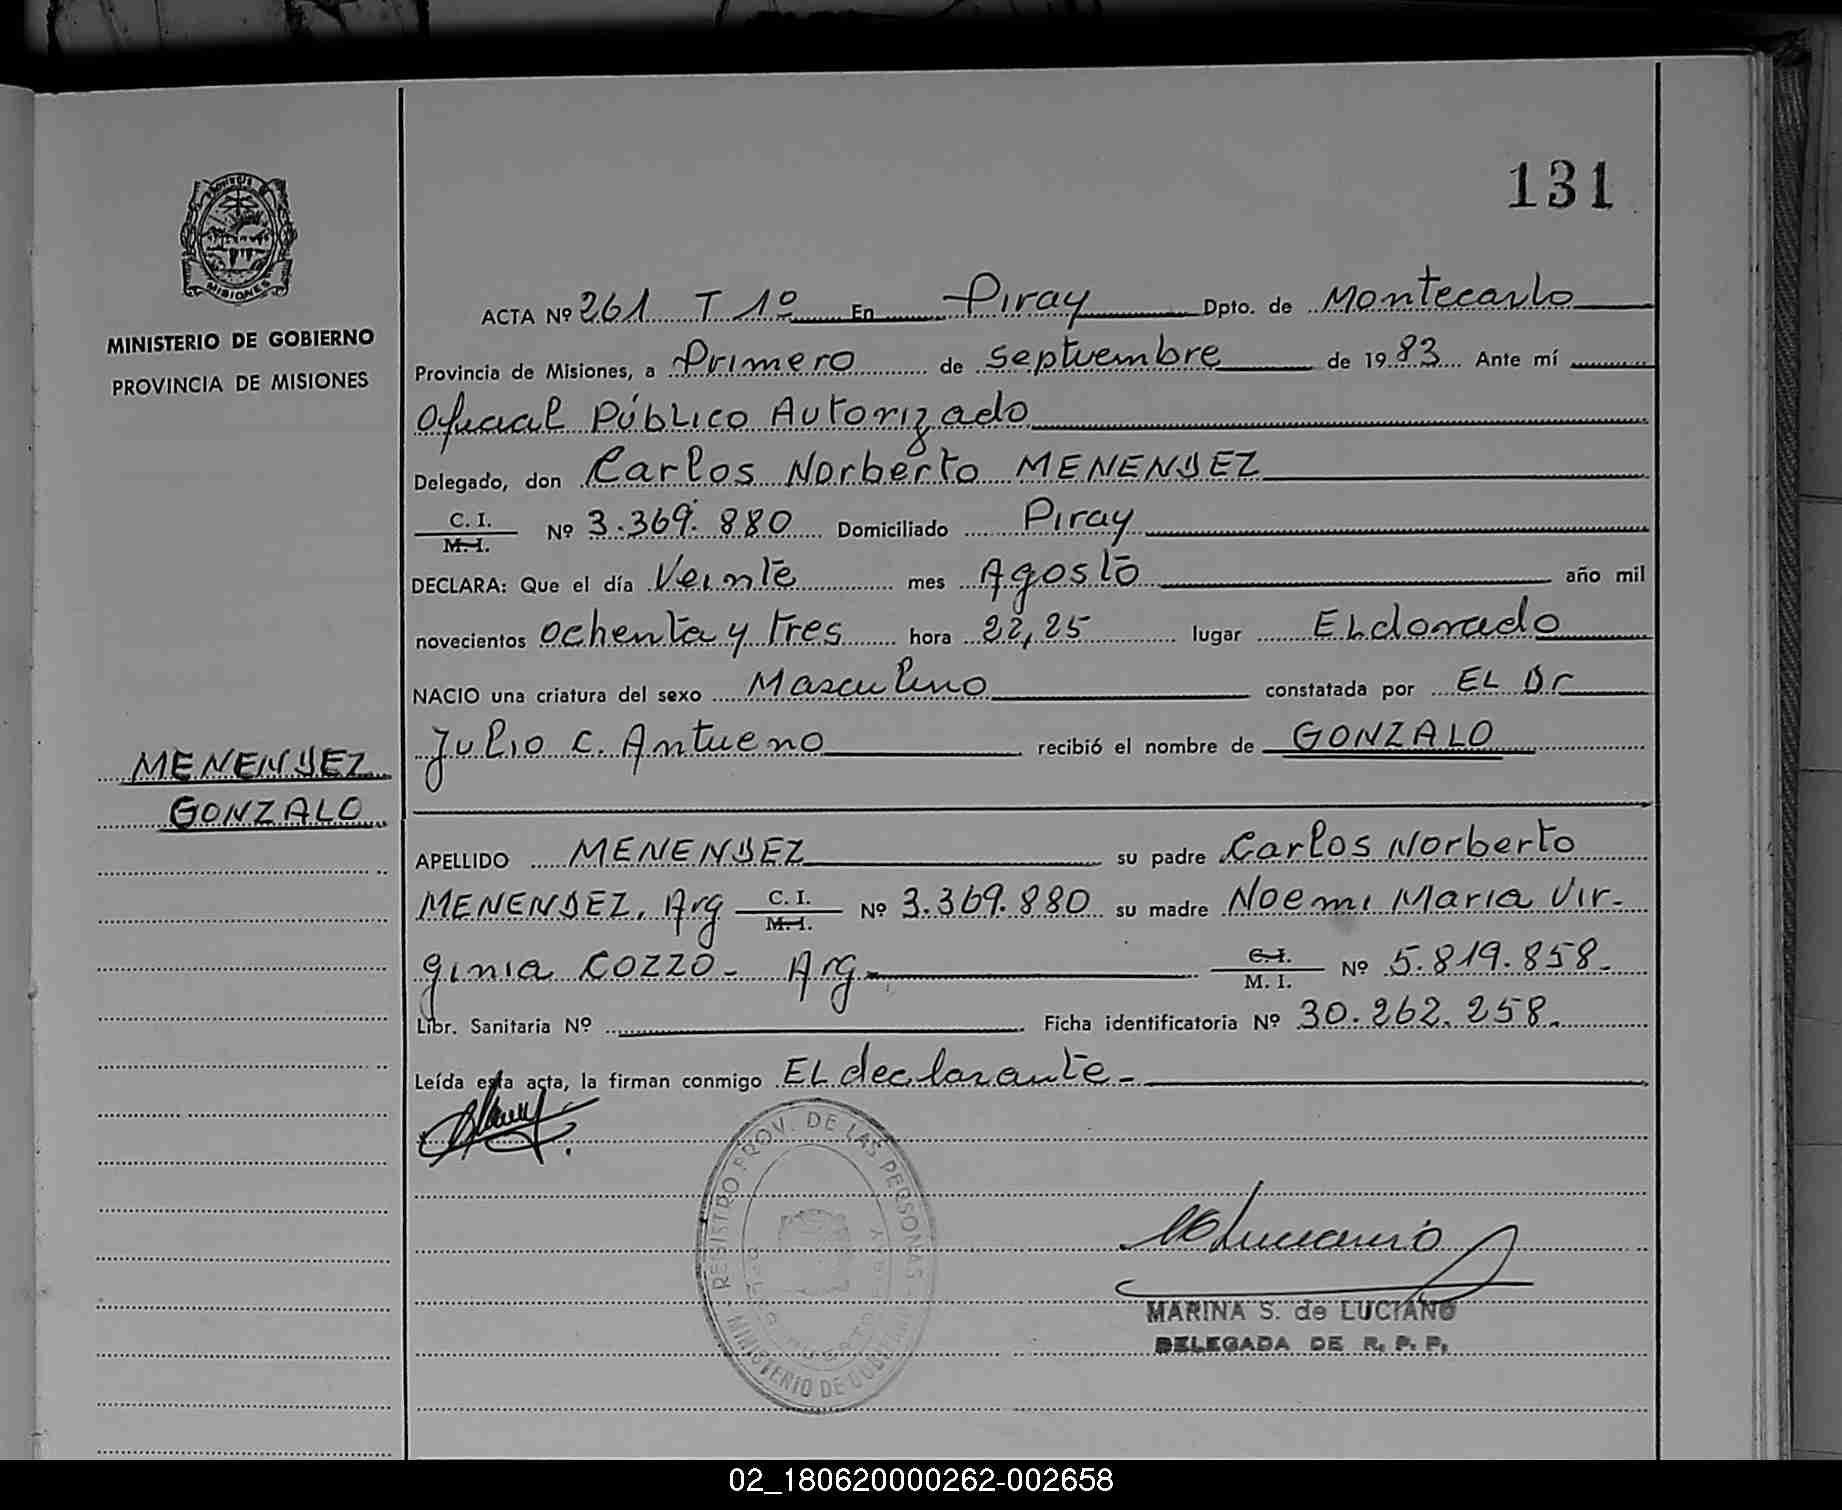 131
PROVINCIA DE
MISIONES
MINISTERIO DE GOBIERNO
PROVINCIA DE MISIONES
ACTA Nº 261 T 1º En Piray Dpto. de Montecarlo
Provincia de Misiones, a Primero de Septiembre de 1983 Ante mí
Oficial Público Autorizado
Delegado, don Carlos Norberto MENENDEZ
C. I.
M. I. Nº 3.369.880 Domiciliado Piray
DECLARA: Que el día Veinte mes Agosto año mil
novecientos ochenta y tres hora 22,25 lugar ELdorado
NACIO una criatura del sexo Masculino constatada por EL Dr
Julio C. Antueno recibió el nombre de GONZALO
MENENDEZ
GONZALO
APELLIDO MENENDEZ su padre Carlos Norberto
MENENDEZ, Arg C. I.
M. I. Nº 3.369.880 su madre Noemi Maria Vir-
ginia COZZO- Arg. C. I.
M. I. Nº 5.819.858.
Libr. Sanitaria Nº Ficha identificatoria Nº 30.262.258.
Leída esta acta, la firman conmigo EL declarante-
REGISTRO PROV. DE LAS PERSONAS
MINISTERIO DE GOBIERNO
MARINA S. de LUCIANO
DELEGADA DE R. P. P.
02_180620000262-002658